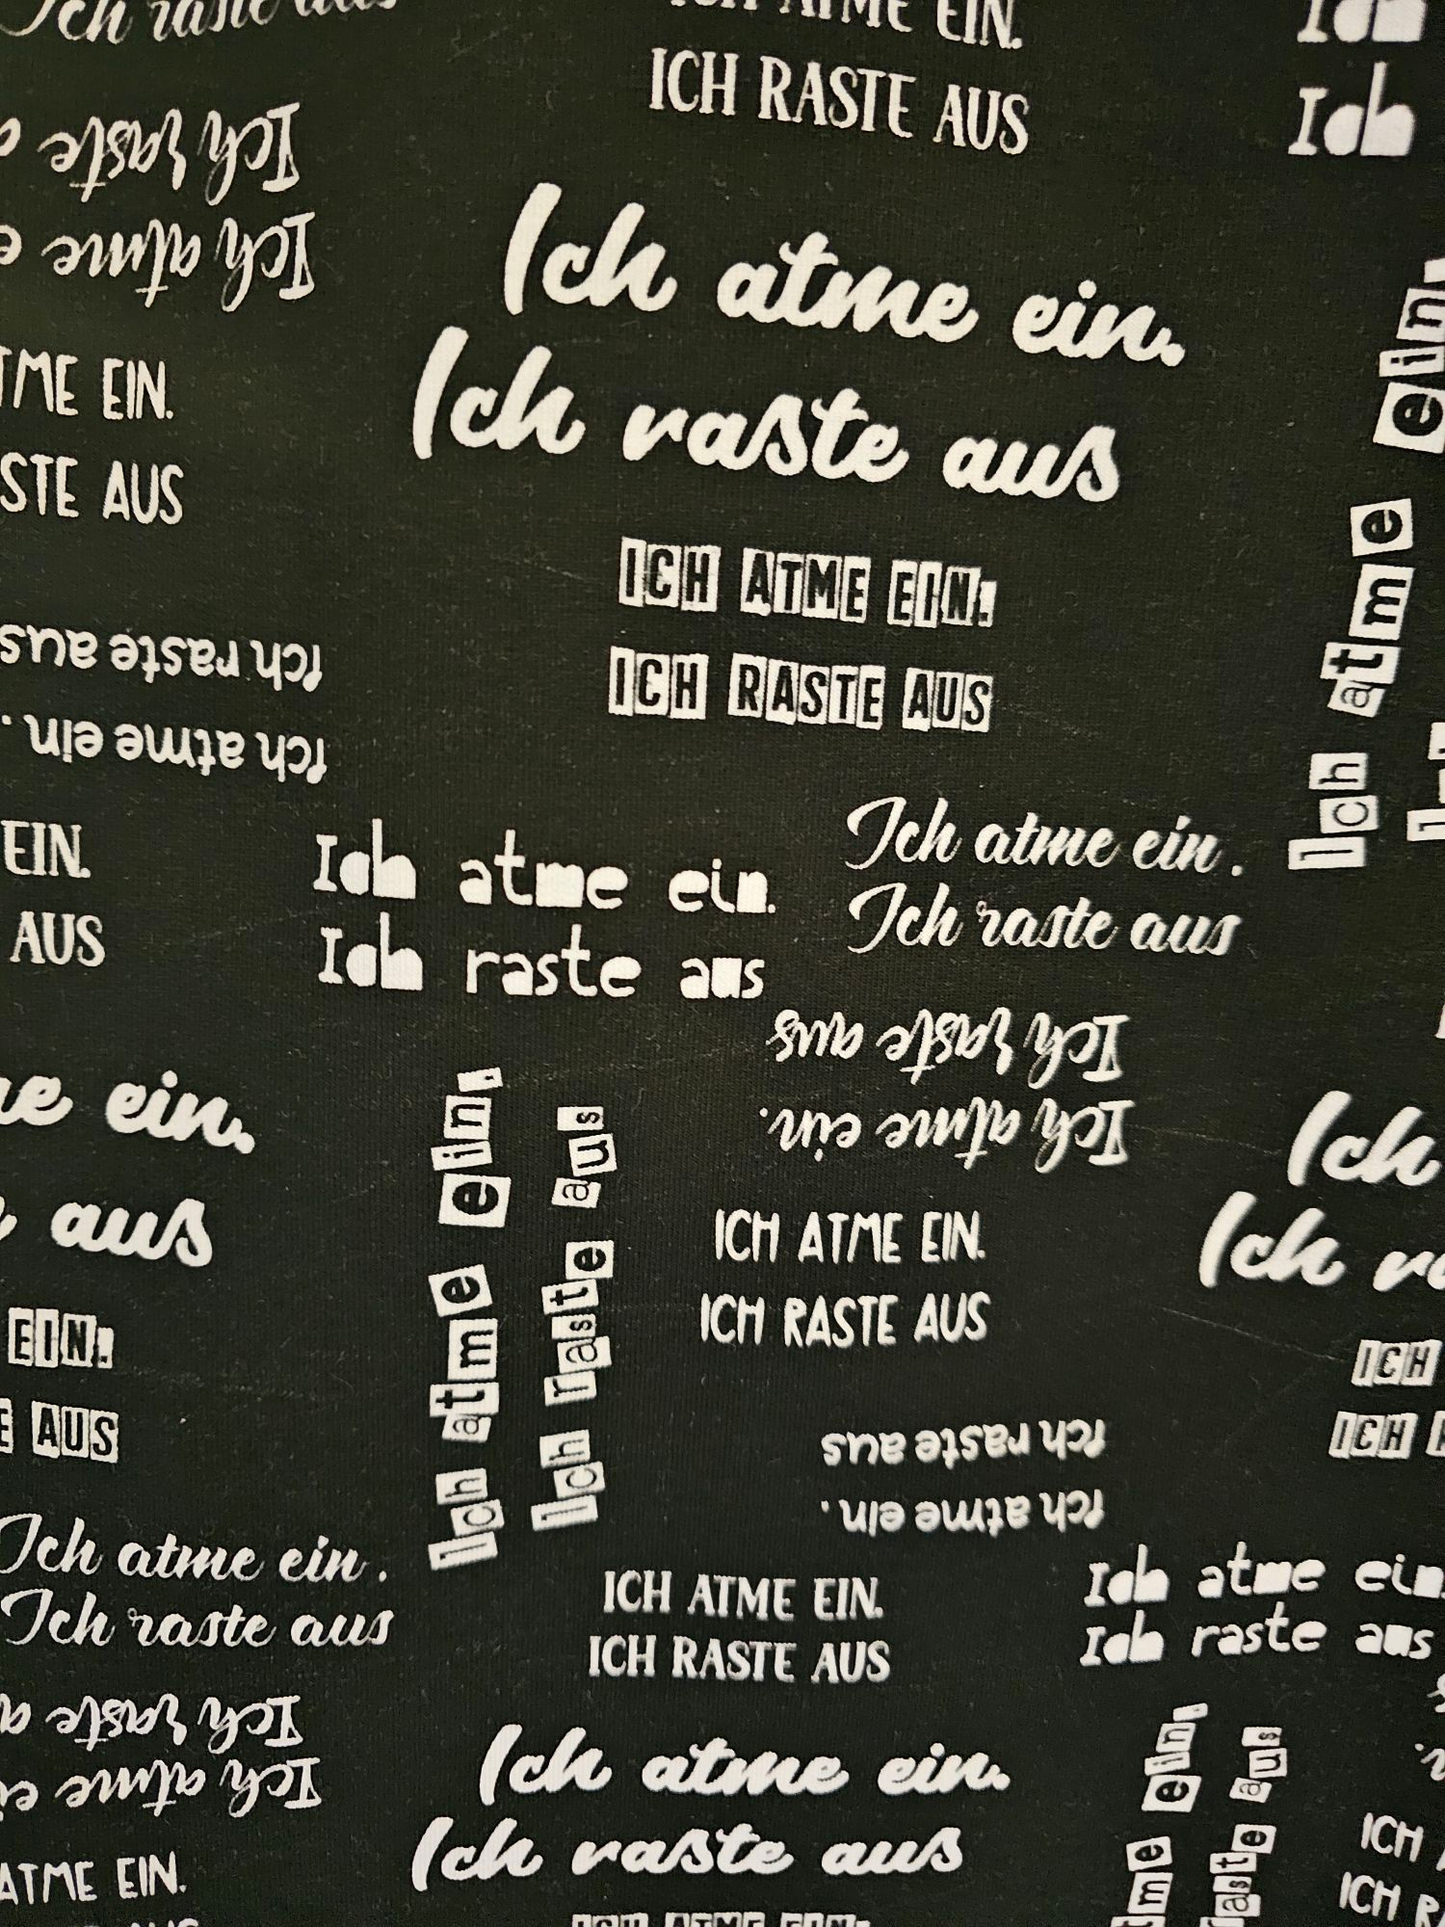 Ich raste aus
ICH ATME EIN.
ICH RASTE AUS
Ich
Ich
Ich raste
Ich atme e
Ich atme ein.
Ich raste aus
ATME EIN.
RASTE AUS
ICH ATME EIN.
ICH RASTE AUS
Ich atme ein.
Ich raste aus
Ich atme ein.
EIN.
AUS
Ich atme ein.
Ich raste aus
Ich atme ein.
Ich raste aus
Ich raste aus
Ich atme ein.
ein.
aus
Ich atme ein.
Ich raste aus
ICH ATME EIN.
ICH RASTE AUS
Ich
Ich
EIN.
AUS
ICH
ICH
Ich raste aus
Ich atme ein.
Ich atme ein.
Ich raste aus
ICH ATME EIN.
ICH RASTE AUS
Ich atme ein
Ich raste aus
Ich raste
Ich atme
Ich atme ein.
Ich raste aus
ein.
aus
ATME EIN.
ICH
ICH
ICH ATME EIN.